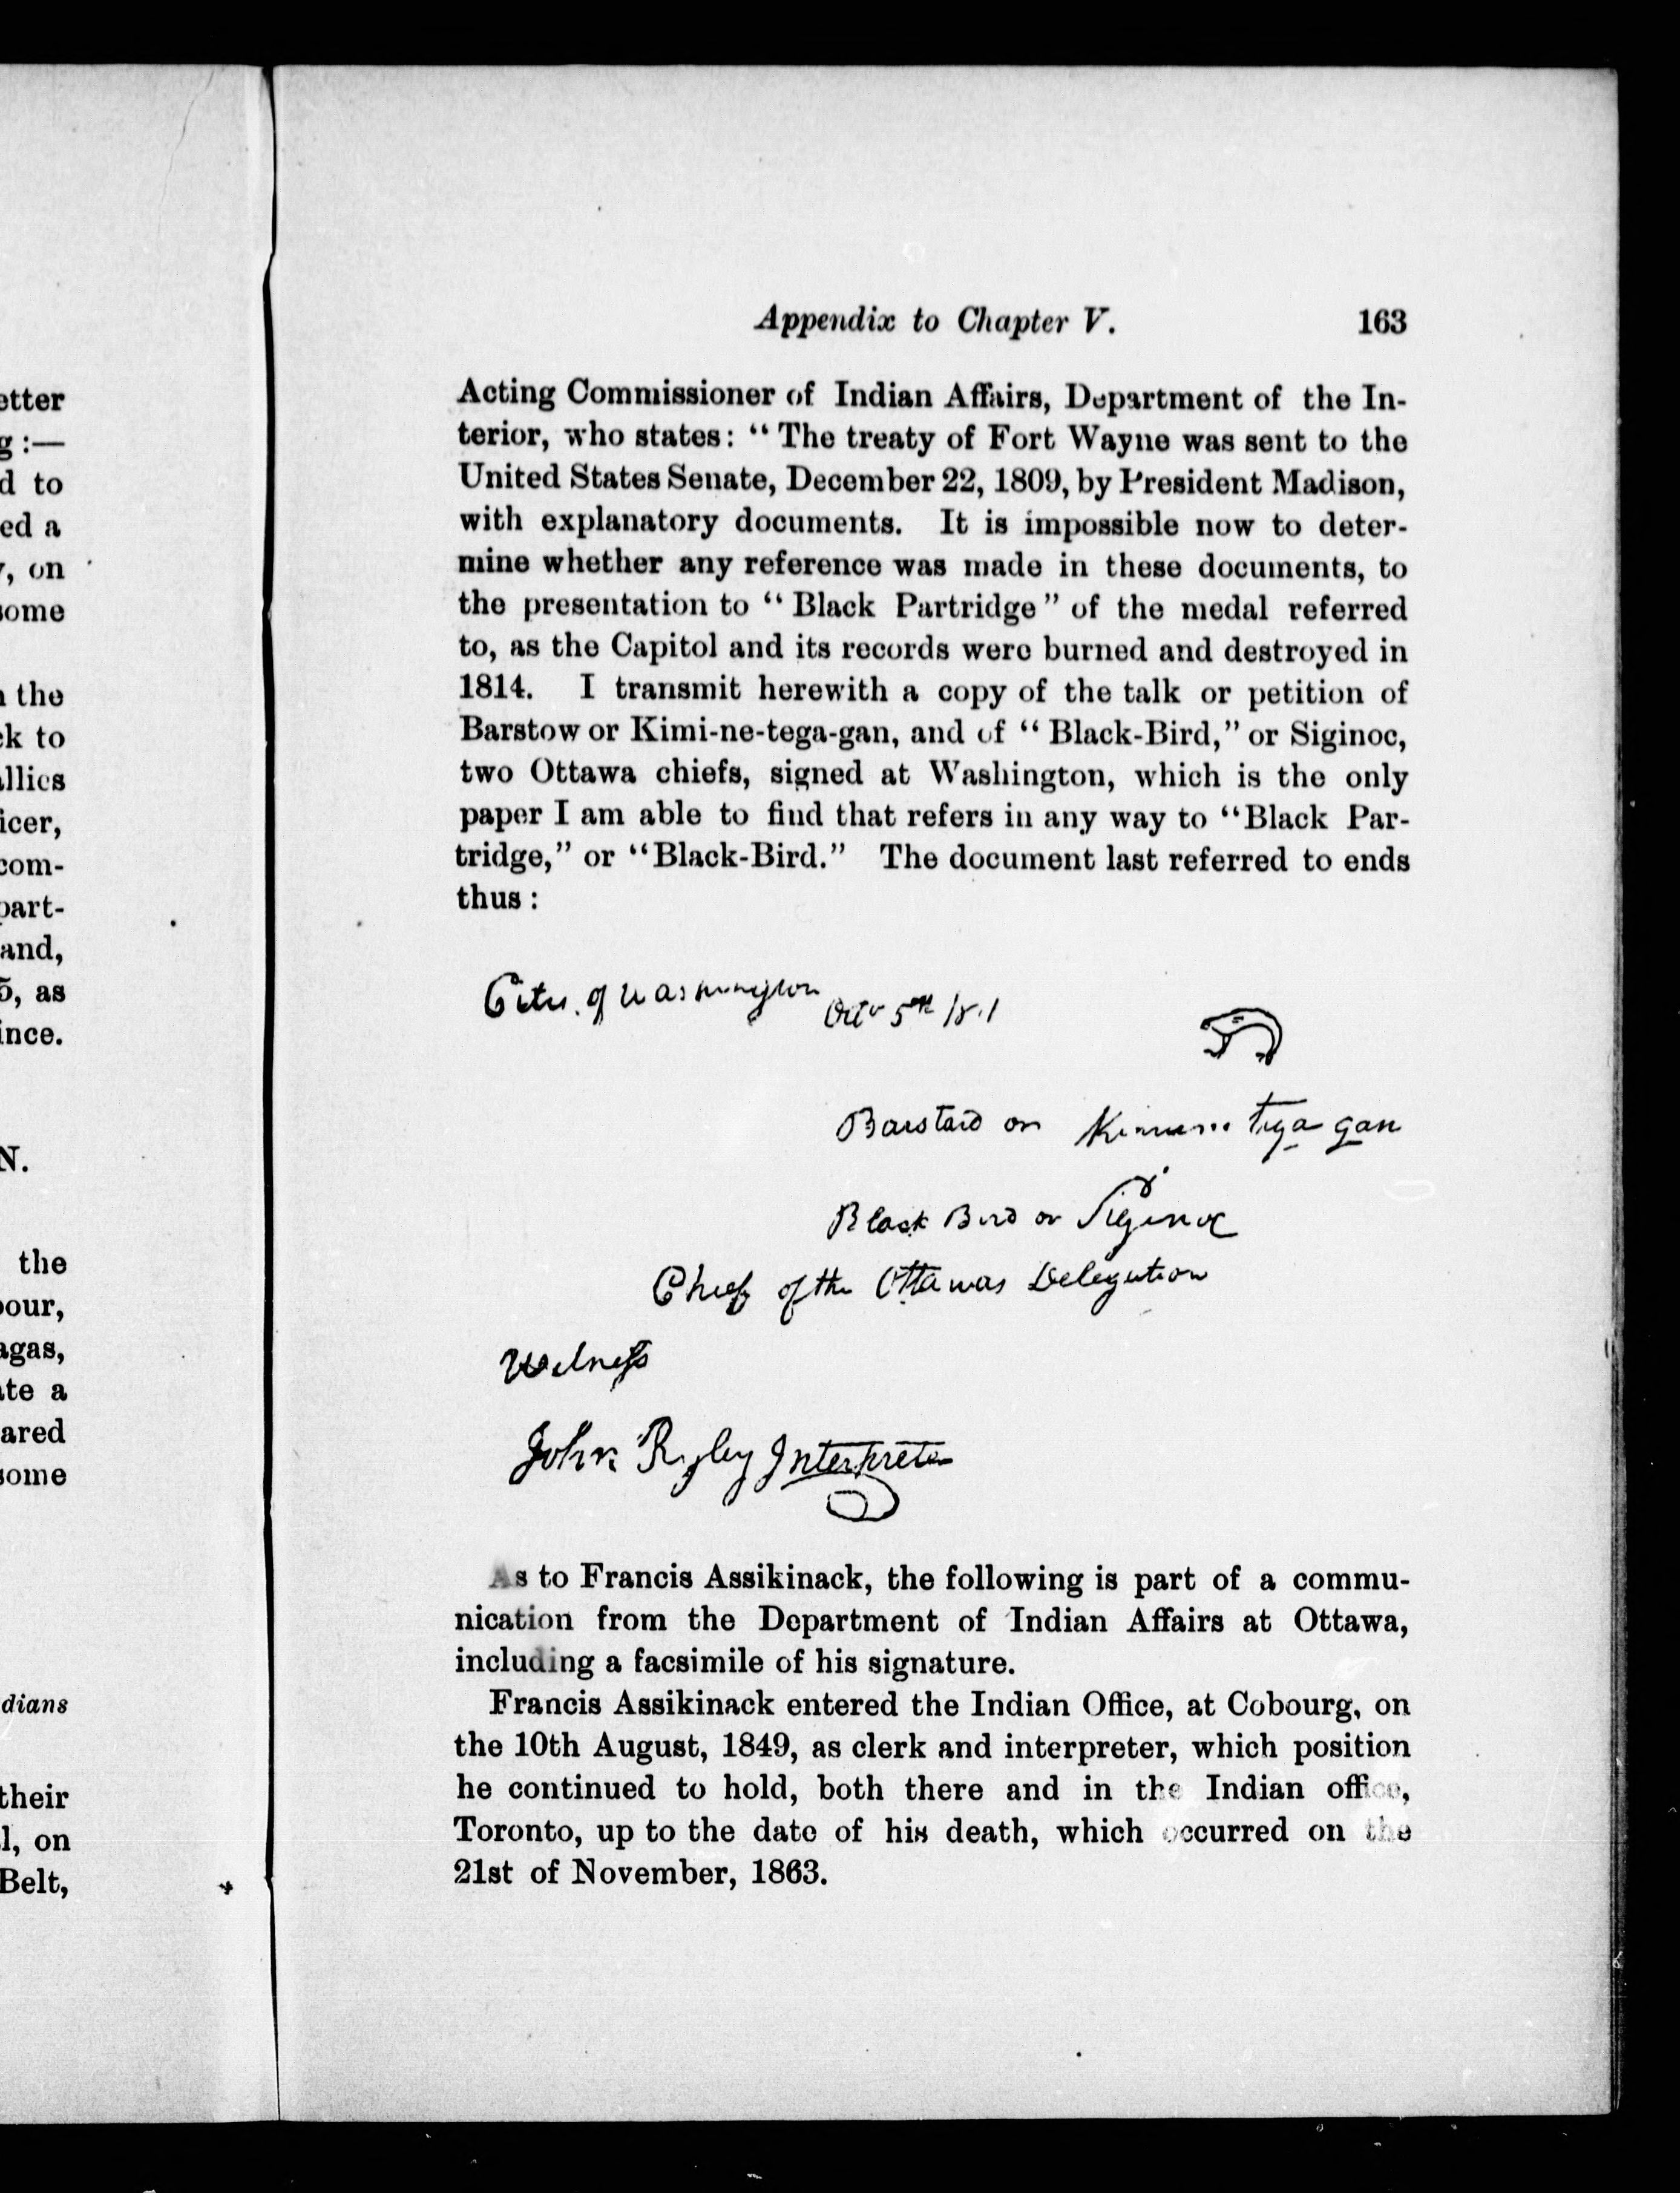 etter
g :—
d to
ed a
, on
some
the
ck to
allies
icer,
com-
part-
and,
5, as
ince.
N.
the
bour,
agas,
ate a
ared
some
dians
their
l, on
Belt,
Appendix to Chapter V. 163
Acting Commissioner of Indian Affairs, Department of the In-
terior, who states: “ The treaty of Fort Wayne was sent to the
United States Senate, December 22, 1809, by President Madison,
with explanatory documents. It is impossible now to deter-
mine whether any reference was made in these documents, to
the presentation to “ Black Partridge ” of the medal referred
to, as the Capitol and its records were burned and destroyed in
1814. I transmit herewith a copy of the talk or petition of
Barstow or Kimi-ne-tega-gan, and of “ Black-Bird,” or Siginoc,
two Ottawa chiefs, signed at Washington, which is the only
paper I am able to find that refers in any way to “Black Par-
tridge,” or “Black-Bird.” The document last referred to ends
thus :
City of Washington Octr 5th
or tega gan
Black Bird or Siginoc
Chiefs of the Ottawas Delegation
Witness
John Interpreter
As to Francis Assikinack, the following is part of a commu-
nication from the Department of Indian Affairs at Ottawa,
including a facsimile of his signature.
Francis Assikinack entered the Indian Office, at Cobourg, on
the 10th August, 1849, as clerk and interpreter, which position
he continued to hold, both there and in the Indian office,
Toronto, up to the date of his death, which occurred on the
21st of November, 1863.